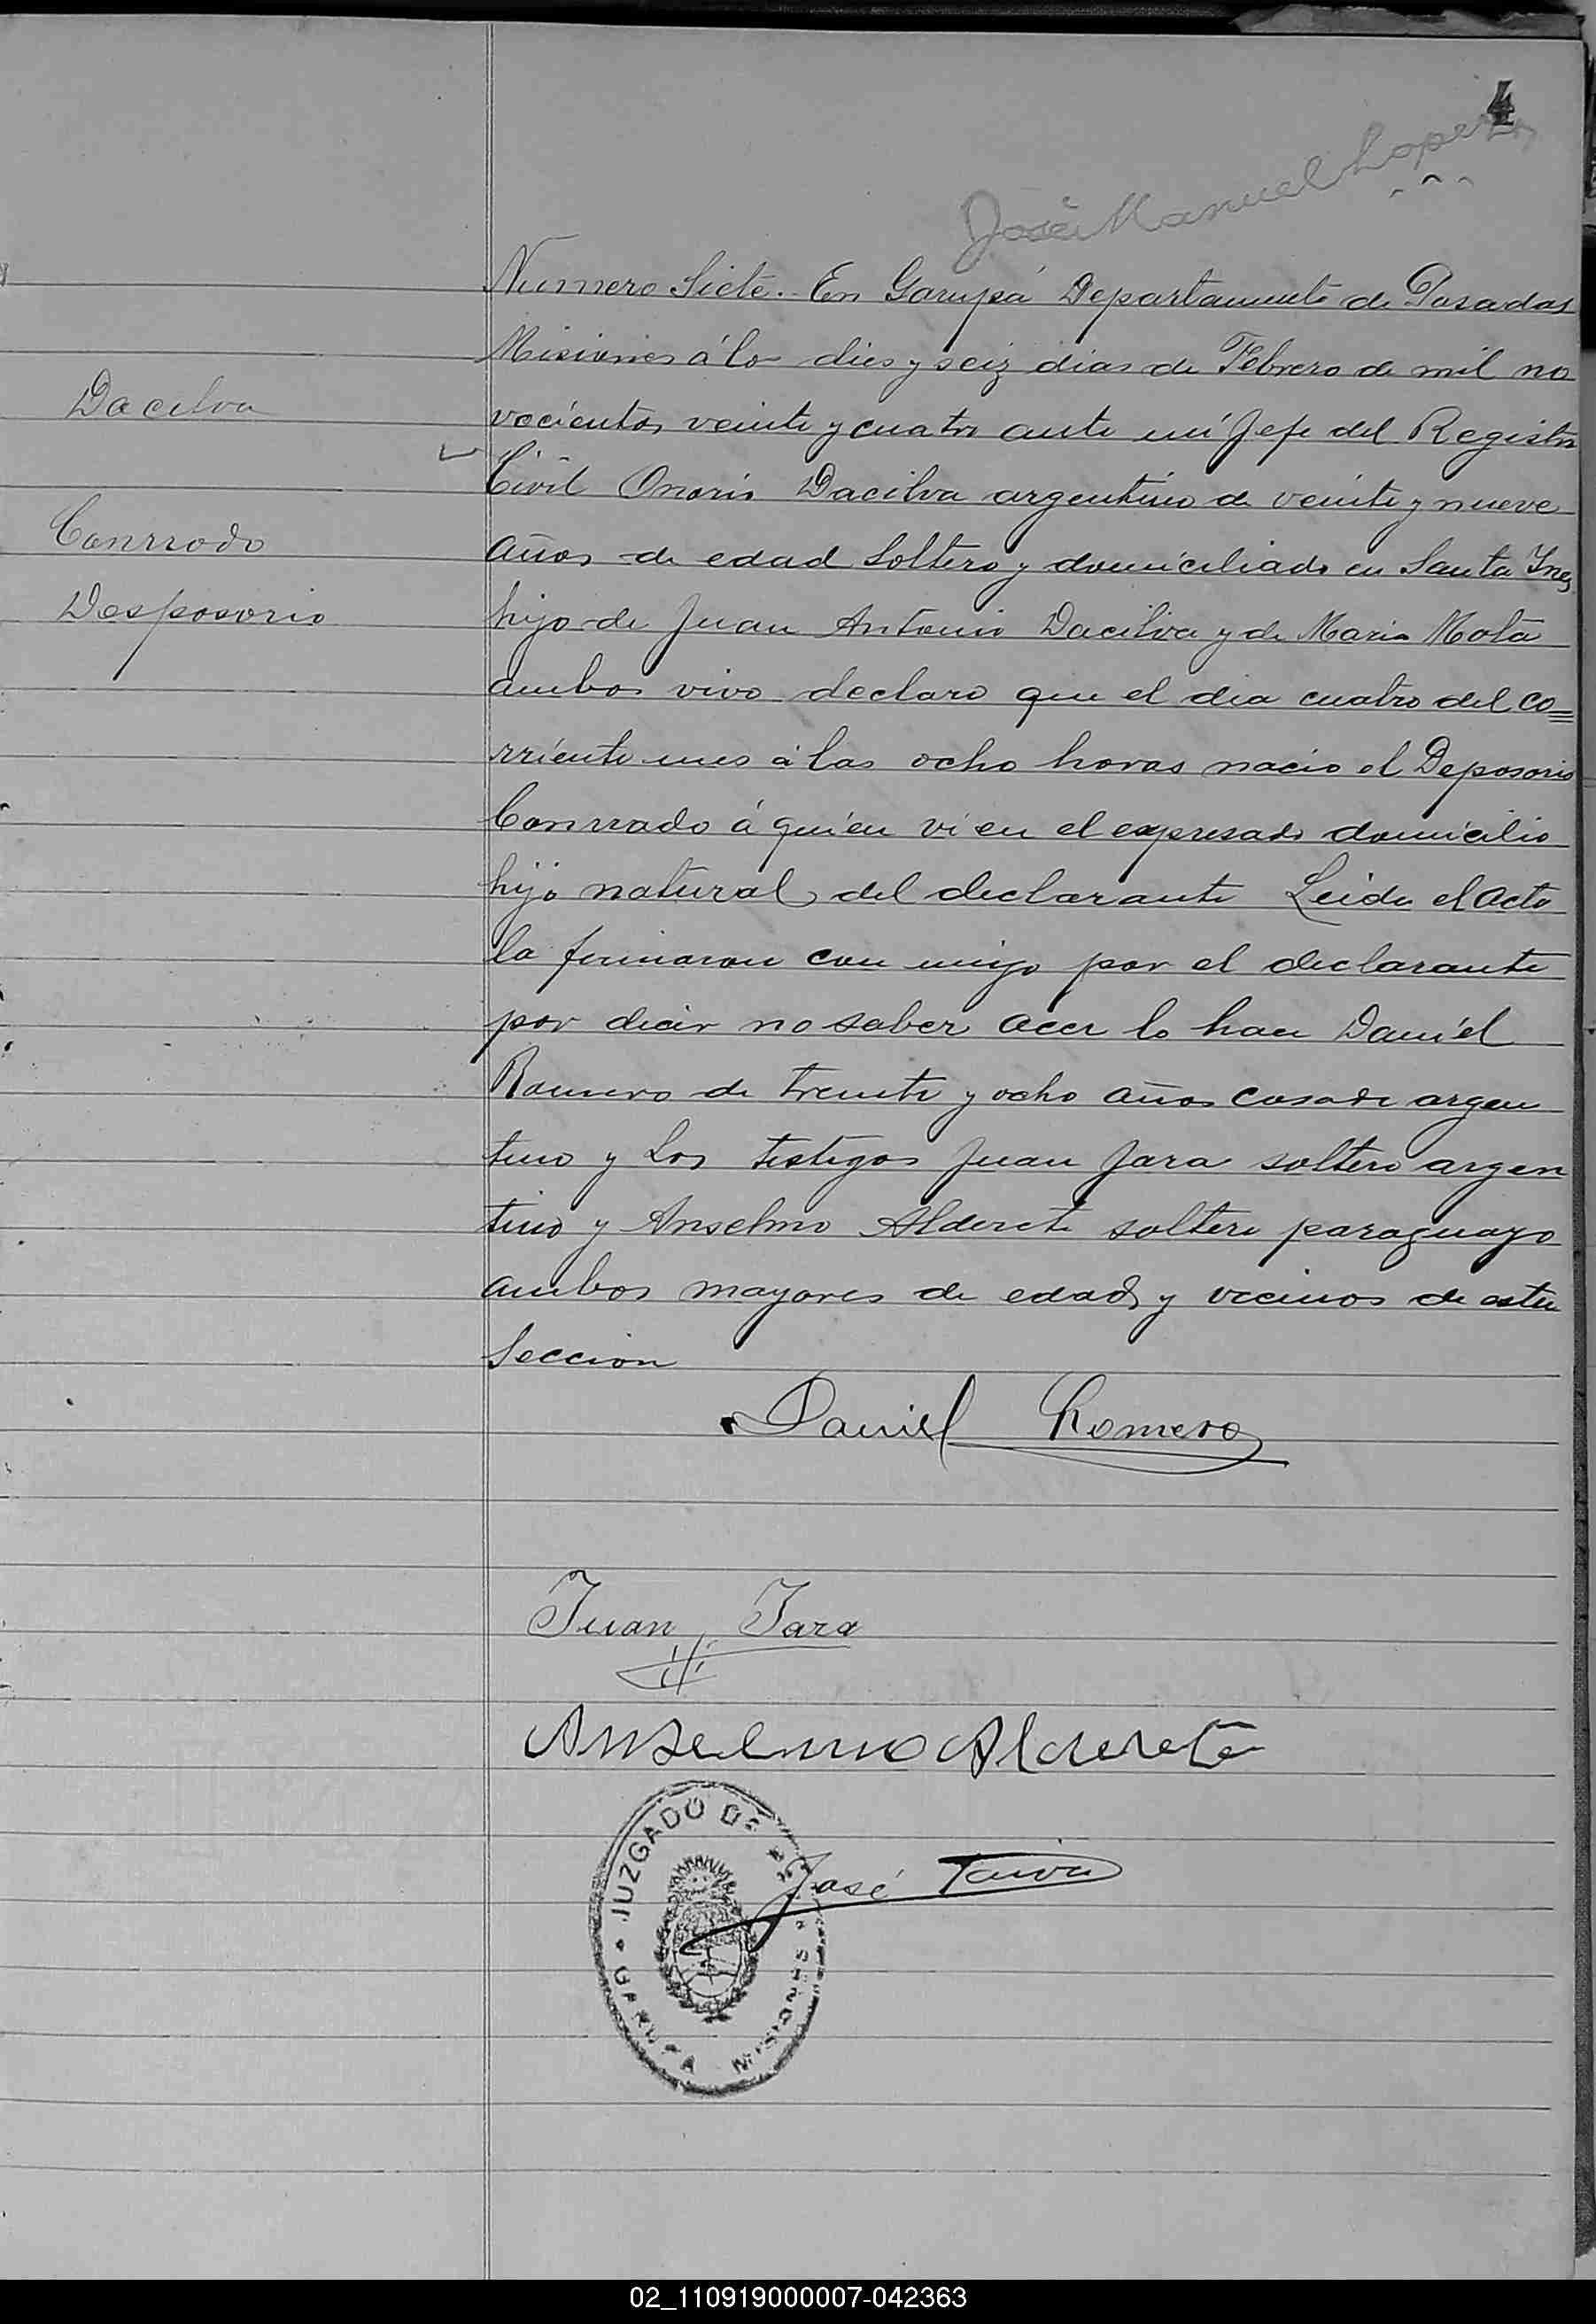 4
José Manuel Lopez
Numero Siete.. En Garupá Departamento de Posadas
Misiones á lo dies y seiz dias de Febrero de mil no
Dacilva
vecientos veinte y cuatro ante mi Jefe del Registro
Civil Onorio Dacilva argentino de veinte y nueve
Conrrado
años de edad Soltero y domiciliado en Santa Ines
Desposorio
hijo de Juan Antonio Dacilva y de Maria Mota
ambos vivo declaro que el dia cuatro del co=
rriente mes á las ocho horas nacio el Deposorio
Conrrado á quien vi en el expresado domicilio
hijo natural del declarante Leida el acta
la firmaron con migo por el declarante
por decir no saber acer lo hace Daniel
Romero de treinta y ocho años casado argen
tino y Los testigos Juan Jara soltero argen
tino y Anselmo Alderete soltero paraguayo
ambos mayores de edad y vecinos de esta
Seccion
Daniel Romero
Juan Jara
Anselmo Alderete
JUZGADO DE
José
GARUPA MISIONES
02_110919000007-042363